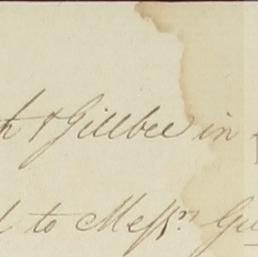 & Gillbee in
to Messrs